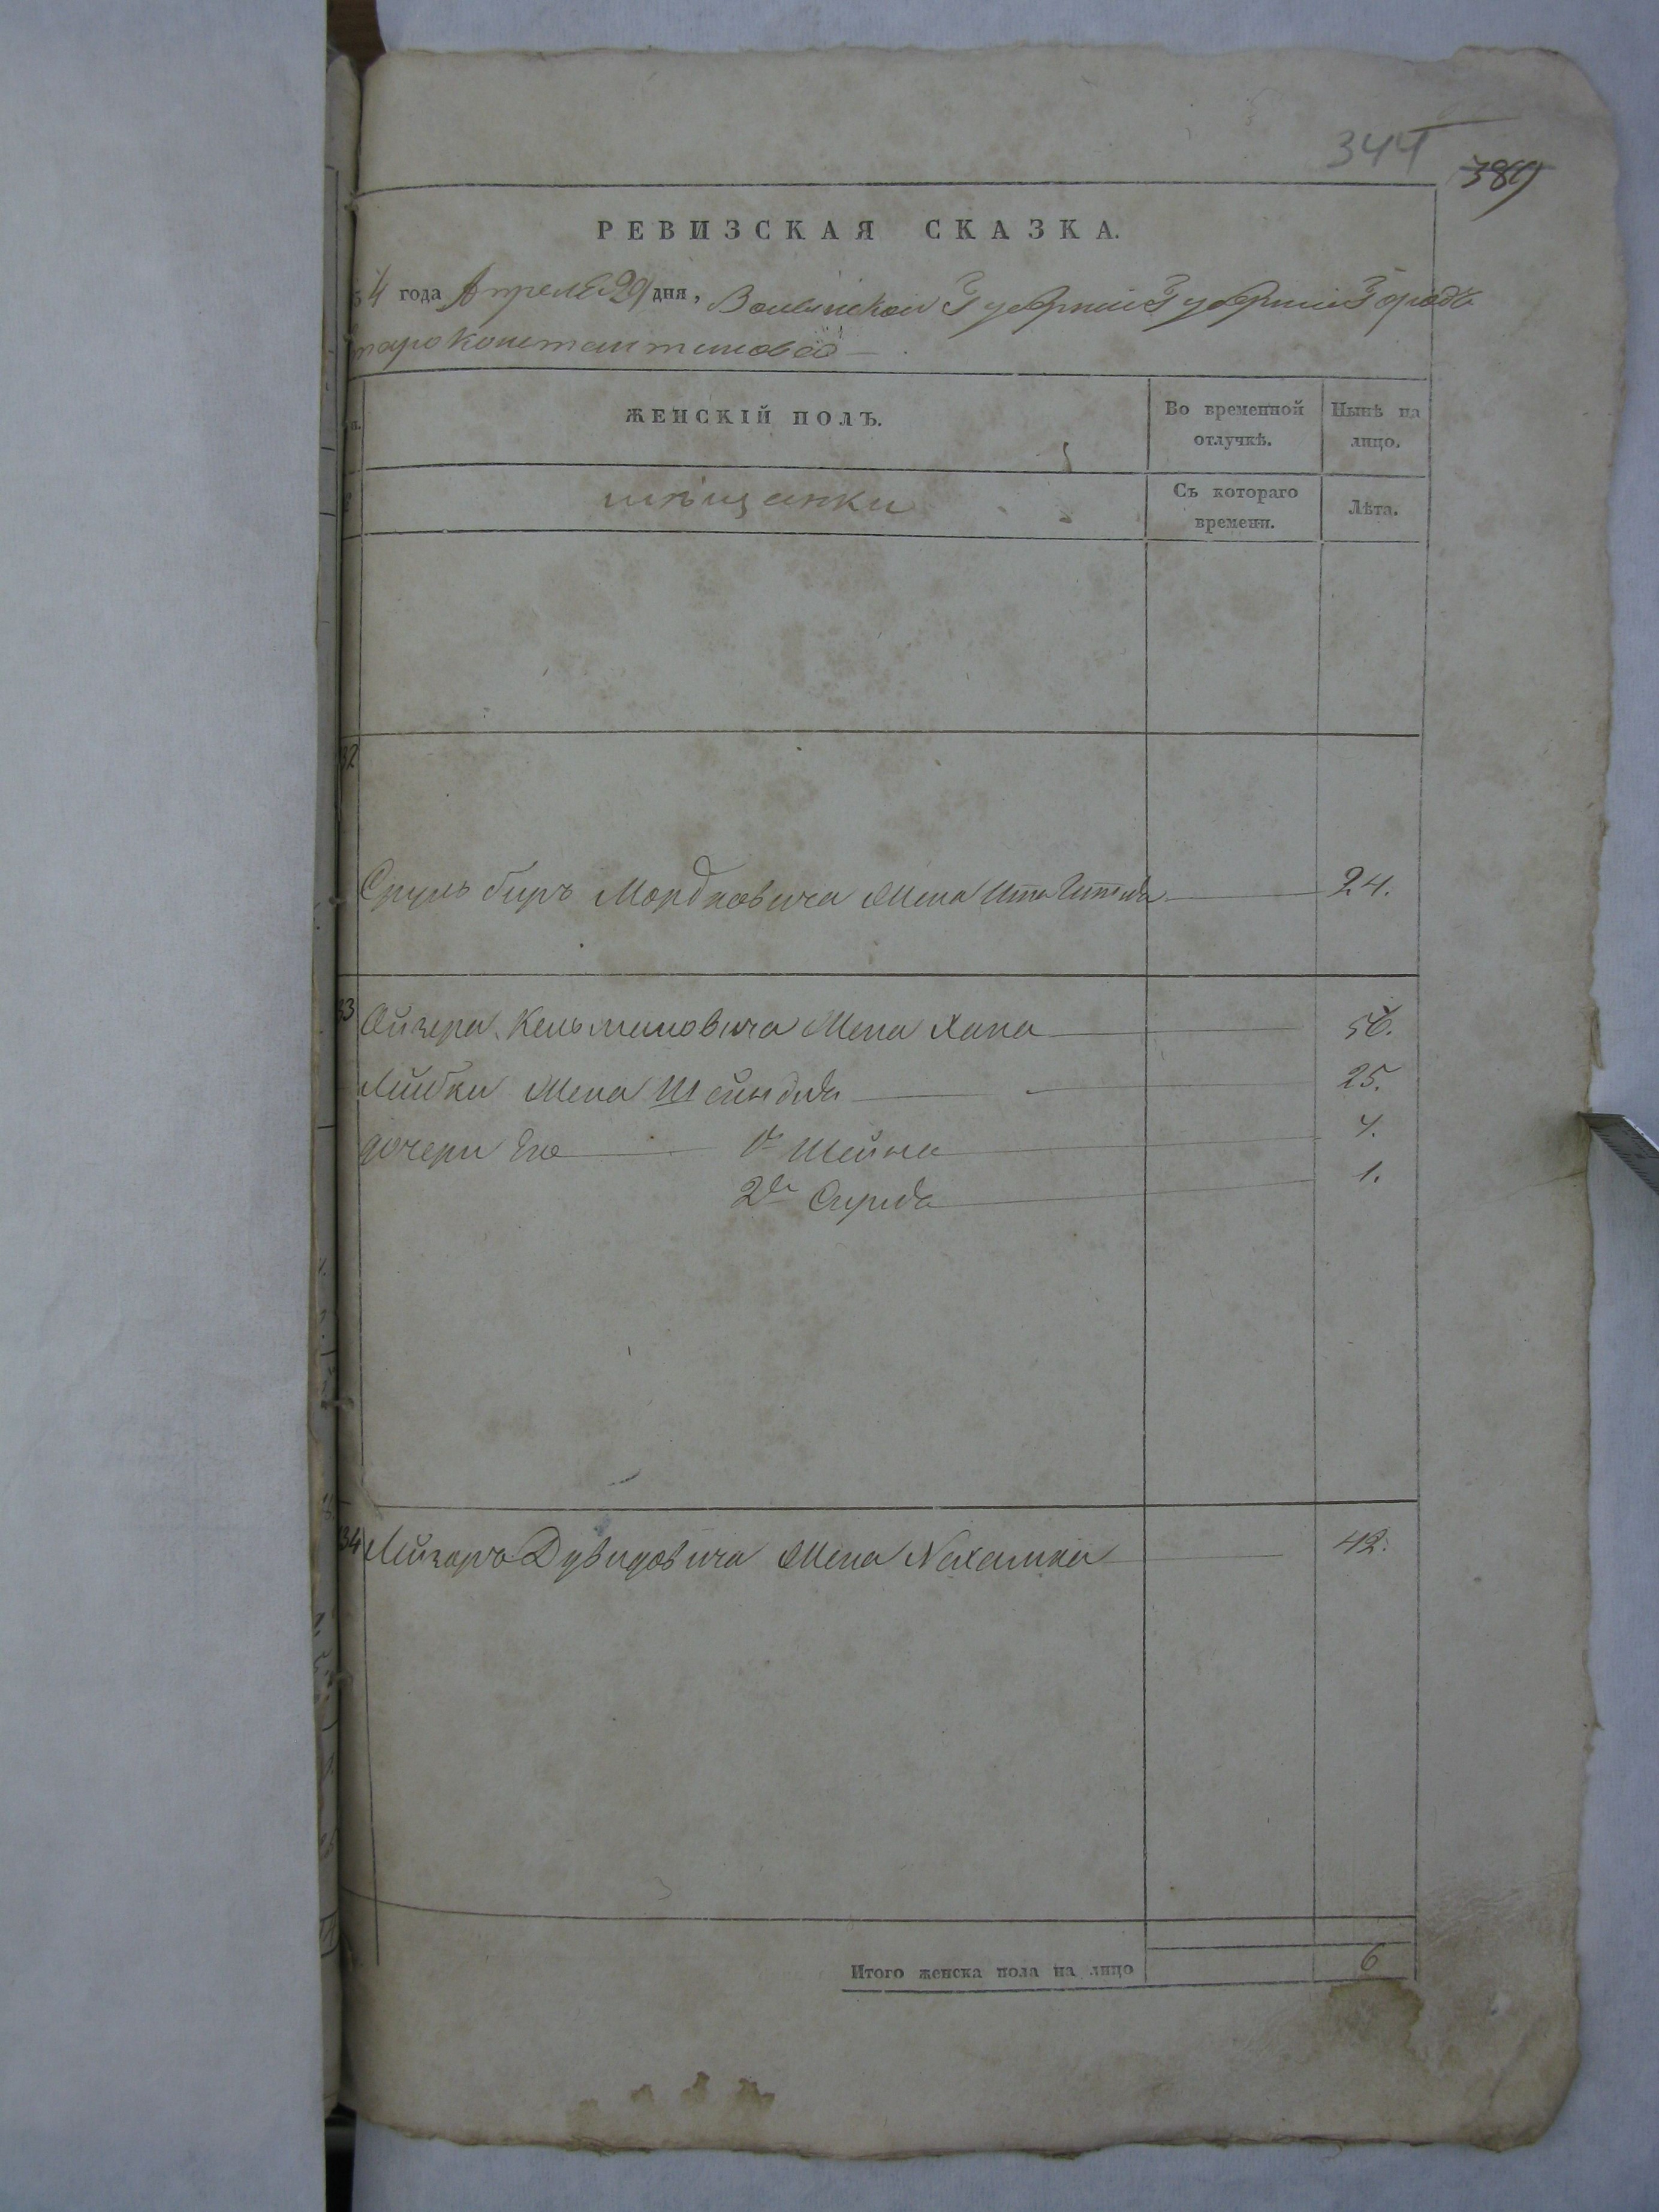 344
389
РЕВИЗСКАЯ СКАЗКА.
4 года Апреля 29 дня, Волынской Губернии Губернии Городъ
тароконстантиновъ
ЖЕНСКІЙ ПОЛЪ.
Во временной отлучкѣ.
Нынѣ на лицо.
мѣщанки
Съ котораго времени.
Лѣта.
32
Сруль Беръ Мордковича Жена 24.
33 Ойзера Кельмановича Жена Хана 50.
Лейбки Жена Шейндля 25.
дочери Его 1я Шейна 4.
2я Сурля 1.
34 Лейзоръ Дувидовича Жена Нехамка 42.
Итого женска пола на лицо 6